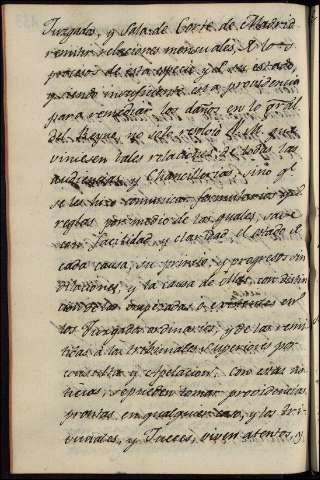 Juzgados, y Sala de Corte de Madrid
remitir relaciones mensuales, de los
procesos de esta especie y de su estado,
y siendo insuficiente esta providencia
para remediar los daños en lo gral
del Reyno, no solo resolvió el que
viniesen tales relaciones de todas las
audiencias y Chancillerías, sino qe
se les hizo comunicar formularios y
reglas por medio de las quales, se
con facilidad, y claridad el estado de
cada causa, su principio, y progreso sin
dilaciones, y la causa de ellas, con distin
cion de las empezadas o en
los Juzgados ordinarios, y de las remi
tidas a los tribunales Superiores por
consulta y apelacion. Con estas no
ticias, se pueden tomar providencias
promtas en qualquier caso, y los tri
bunales, y Jueces, viven atentos, y